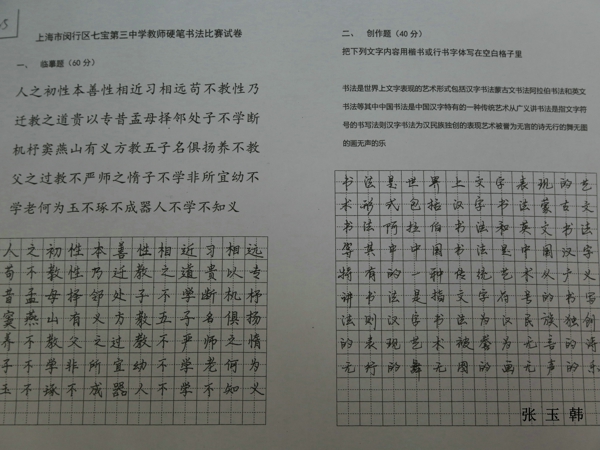 上海市闵行区七宝第三中学教师硬笔书法比赛试卷
一、 临摹题（60分）
人之初性本善性相近习相远苟不教性乃
迁教之道贵以专昔孟母择邻处子不学断
机杼窦燕山有义方教五子名俱扬养不教
父之过教不严师之惰子不学非所宜幼不
学老何为玉不琢不成器人不学不知义
人之初性本善性相近习相远
苟不教性乃迁教之道贵以专
昔孟母择邻处子不学断机杼
窦燕山有义方教五子名俱扬
养不教父之过教不严师之惰
子不学非所宜幼不学老何为
玉不琢不成器人不学不知义
二、 创作题（40分）
把下列文字内容用楷书或行书字体写在空白格子里
书法是世界上文字表现的艺术形式包括汉字书法蒙古文书法阿拉伯书法和英文
书法等其中中国书法是中国汉字特有的一种传统艺术从广义讲书法是指文字符
号的书写法则汉字书法为汉民族独创的表现艺术被誉为无言的诗无行的舞无图
的画无声的乐
书法是世界上文字表现的艺
术形式包括汉字书法蒙古文
书法阿拉伯书法和英文书法
等其中中国书法是中国汉字
特有的一种传统艺术从广义
讲书法是指文字符号的书写
法则汉字书法为汉民族独创
的表现艺术被誉为无言的诗
无行的舞无图的画无声的乐
张玉韩